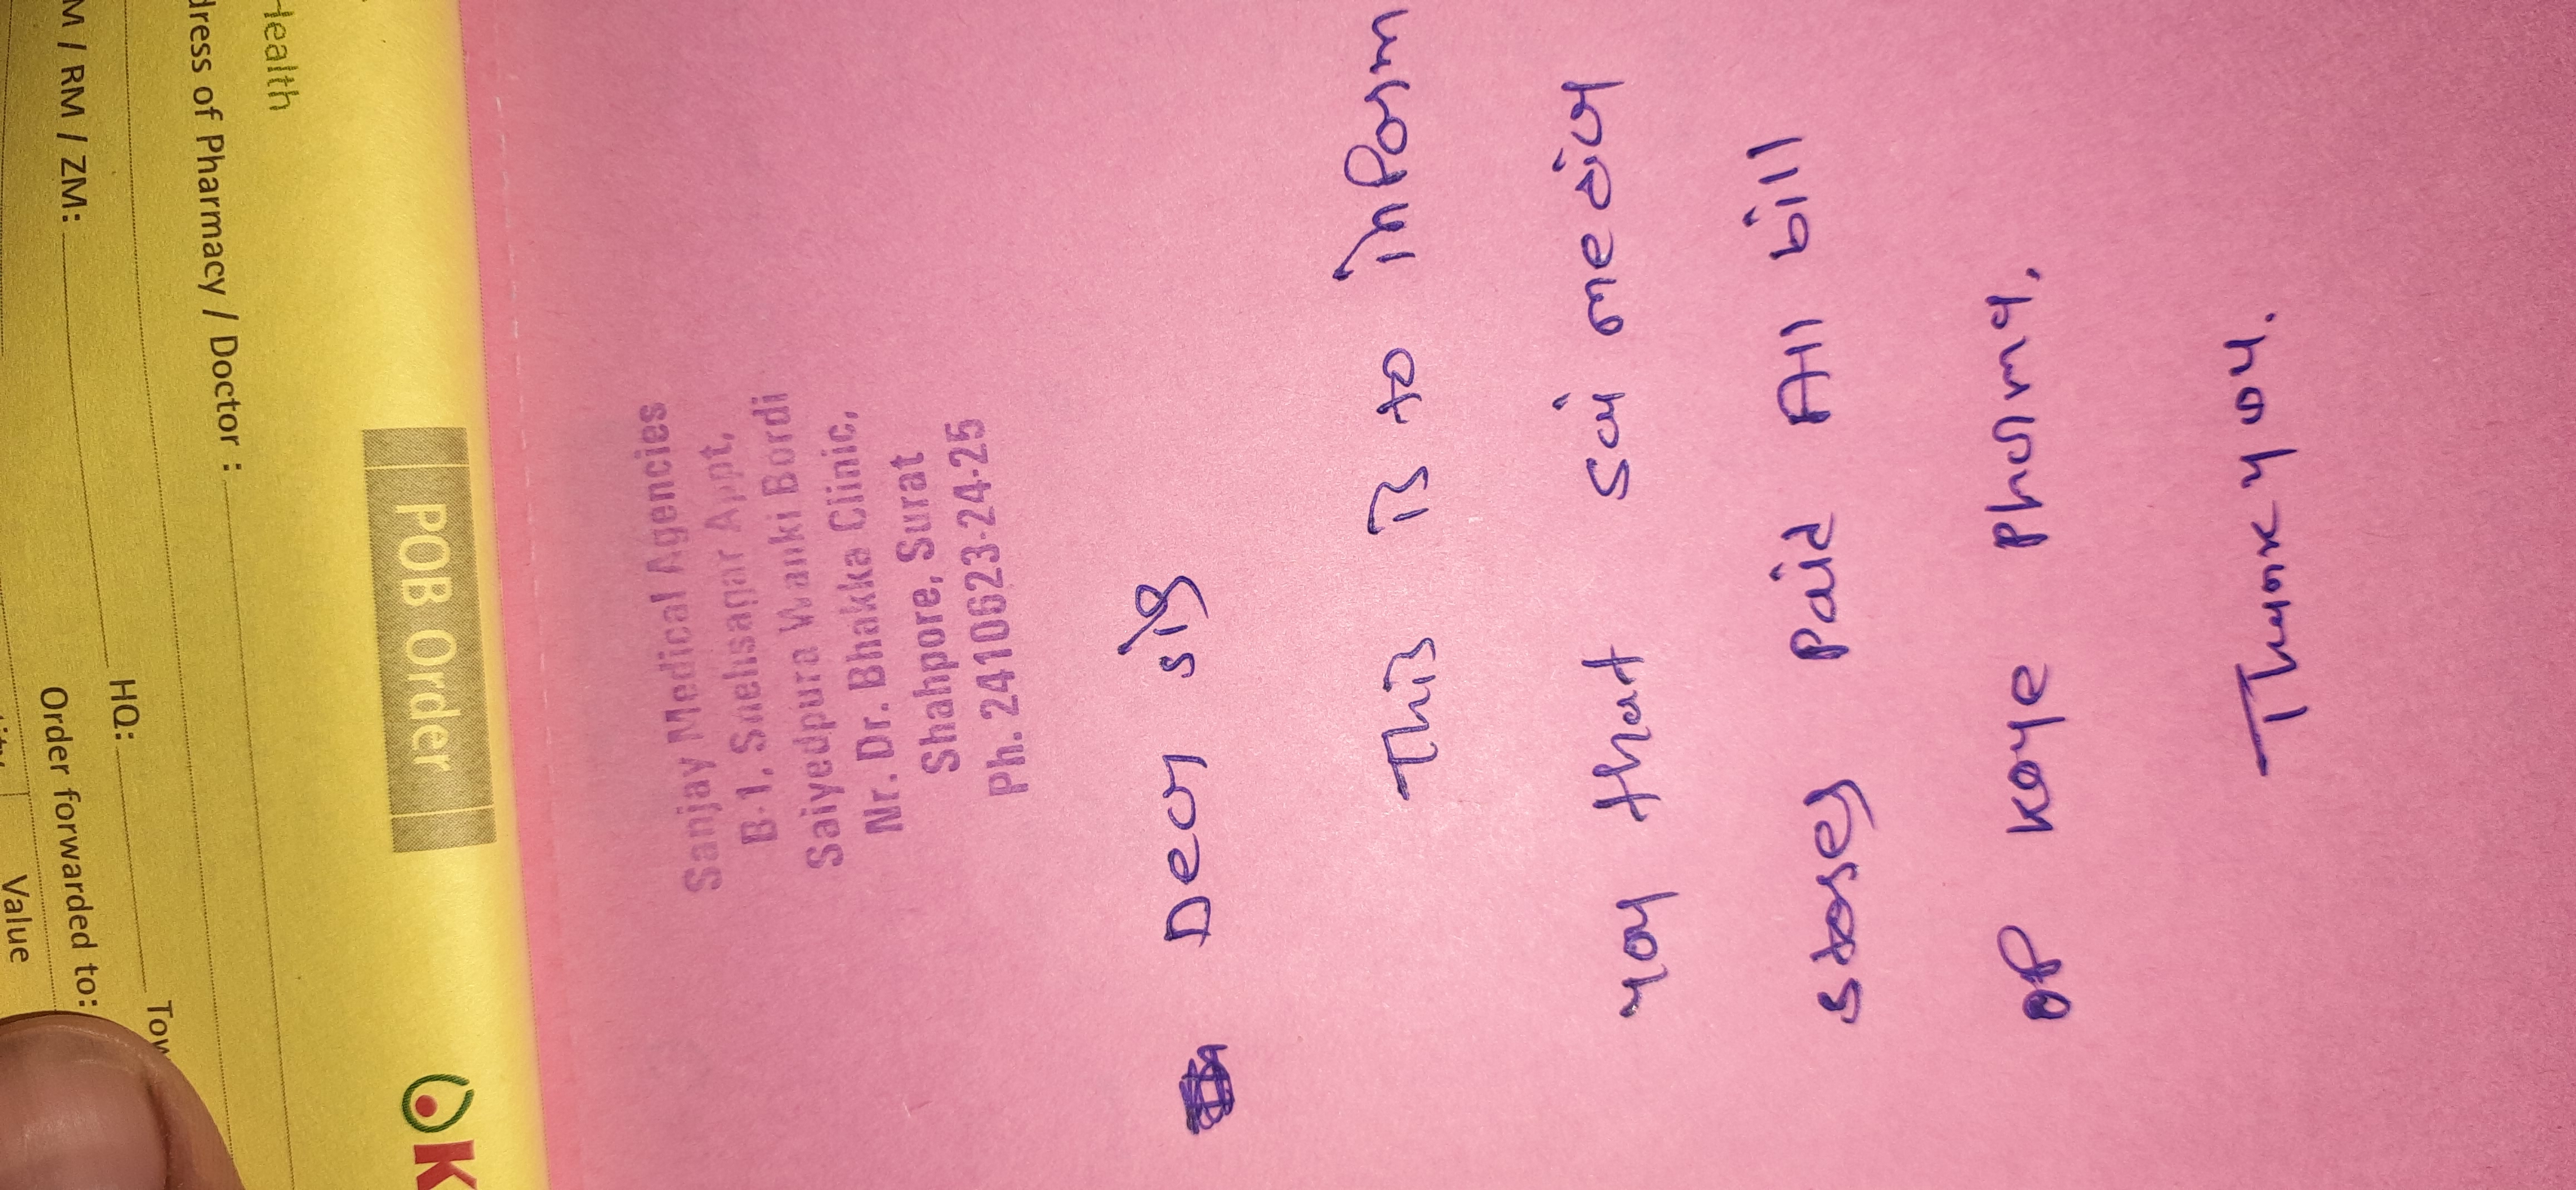 Sanjay Medical Agencies
B-1, Snehsagar Appt,
Saiyedpura Wanki Bordi
Nr. Dr. Bhakka Clinic,
Shahpore, Surat
Ph. 2410623-24-25
Dear sir
This is to inform
you that sai medical
stores paid All bill
of Koye Pharmy.
Thank you.
POB Order
K
Health
dress of Pharmacy / Doctor :
M / RM / ZM:
HQ:
Order forwarded to:
Value